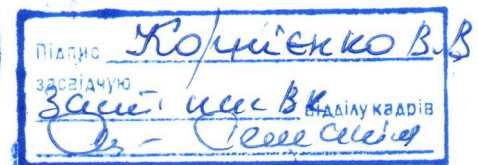 Підпис Корнієнко В.В
засвідчую
Заст. нач ВК відділу кадрів